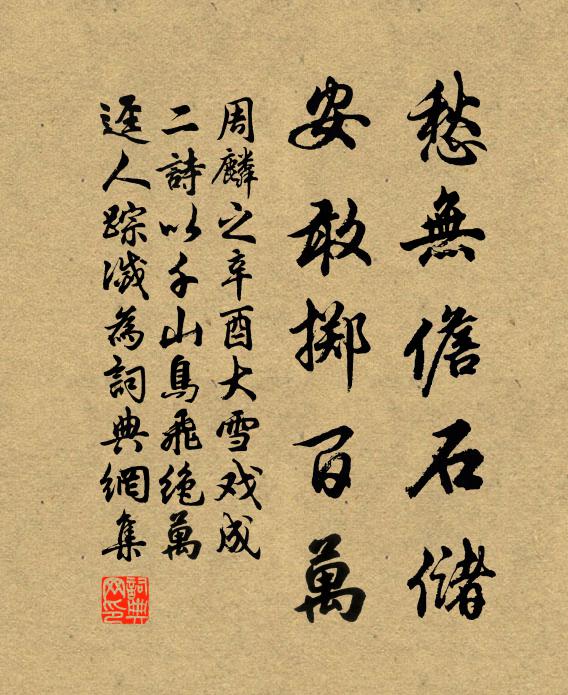 愁無儋石儲
安敢擲百萬
周麟之辛酉大雪戏成
二詩以千山鳥飛绝萬
迳人踪滅為詞典網集
詞典网印